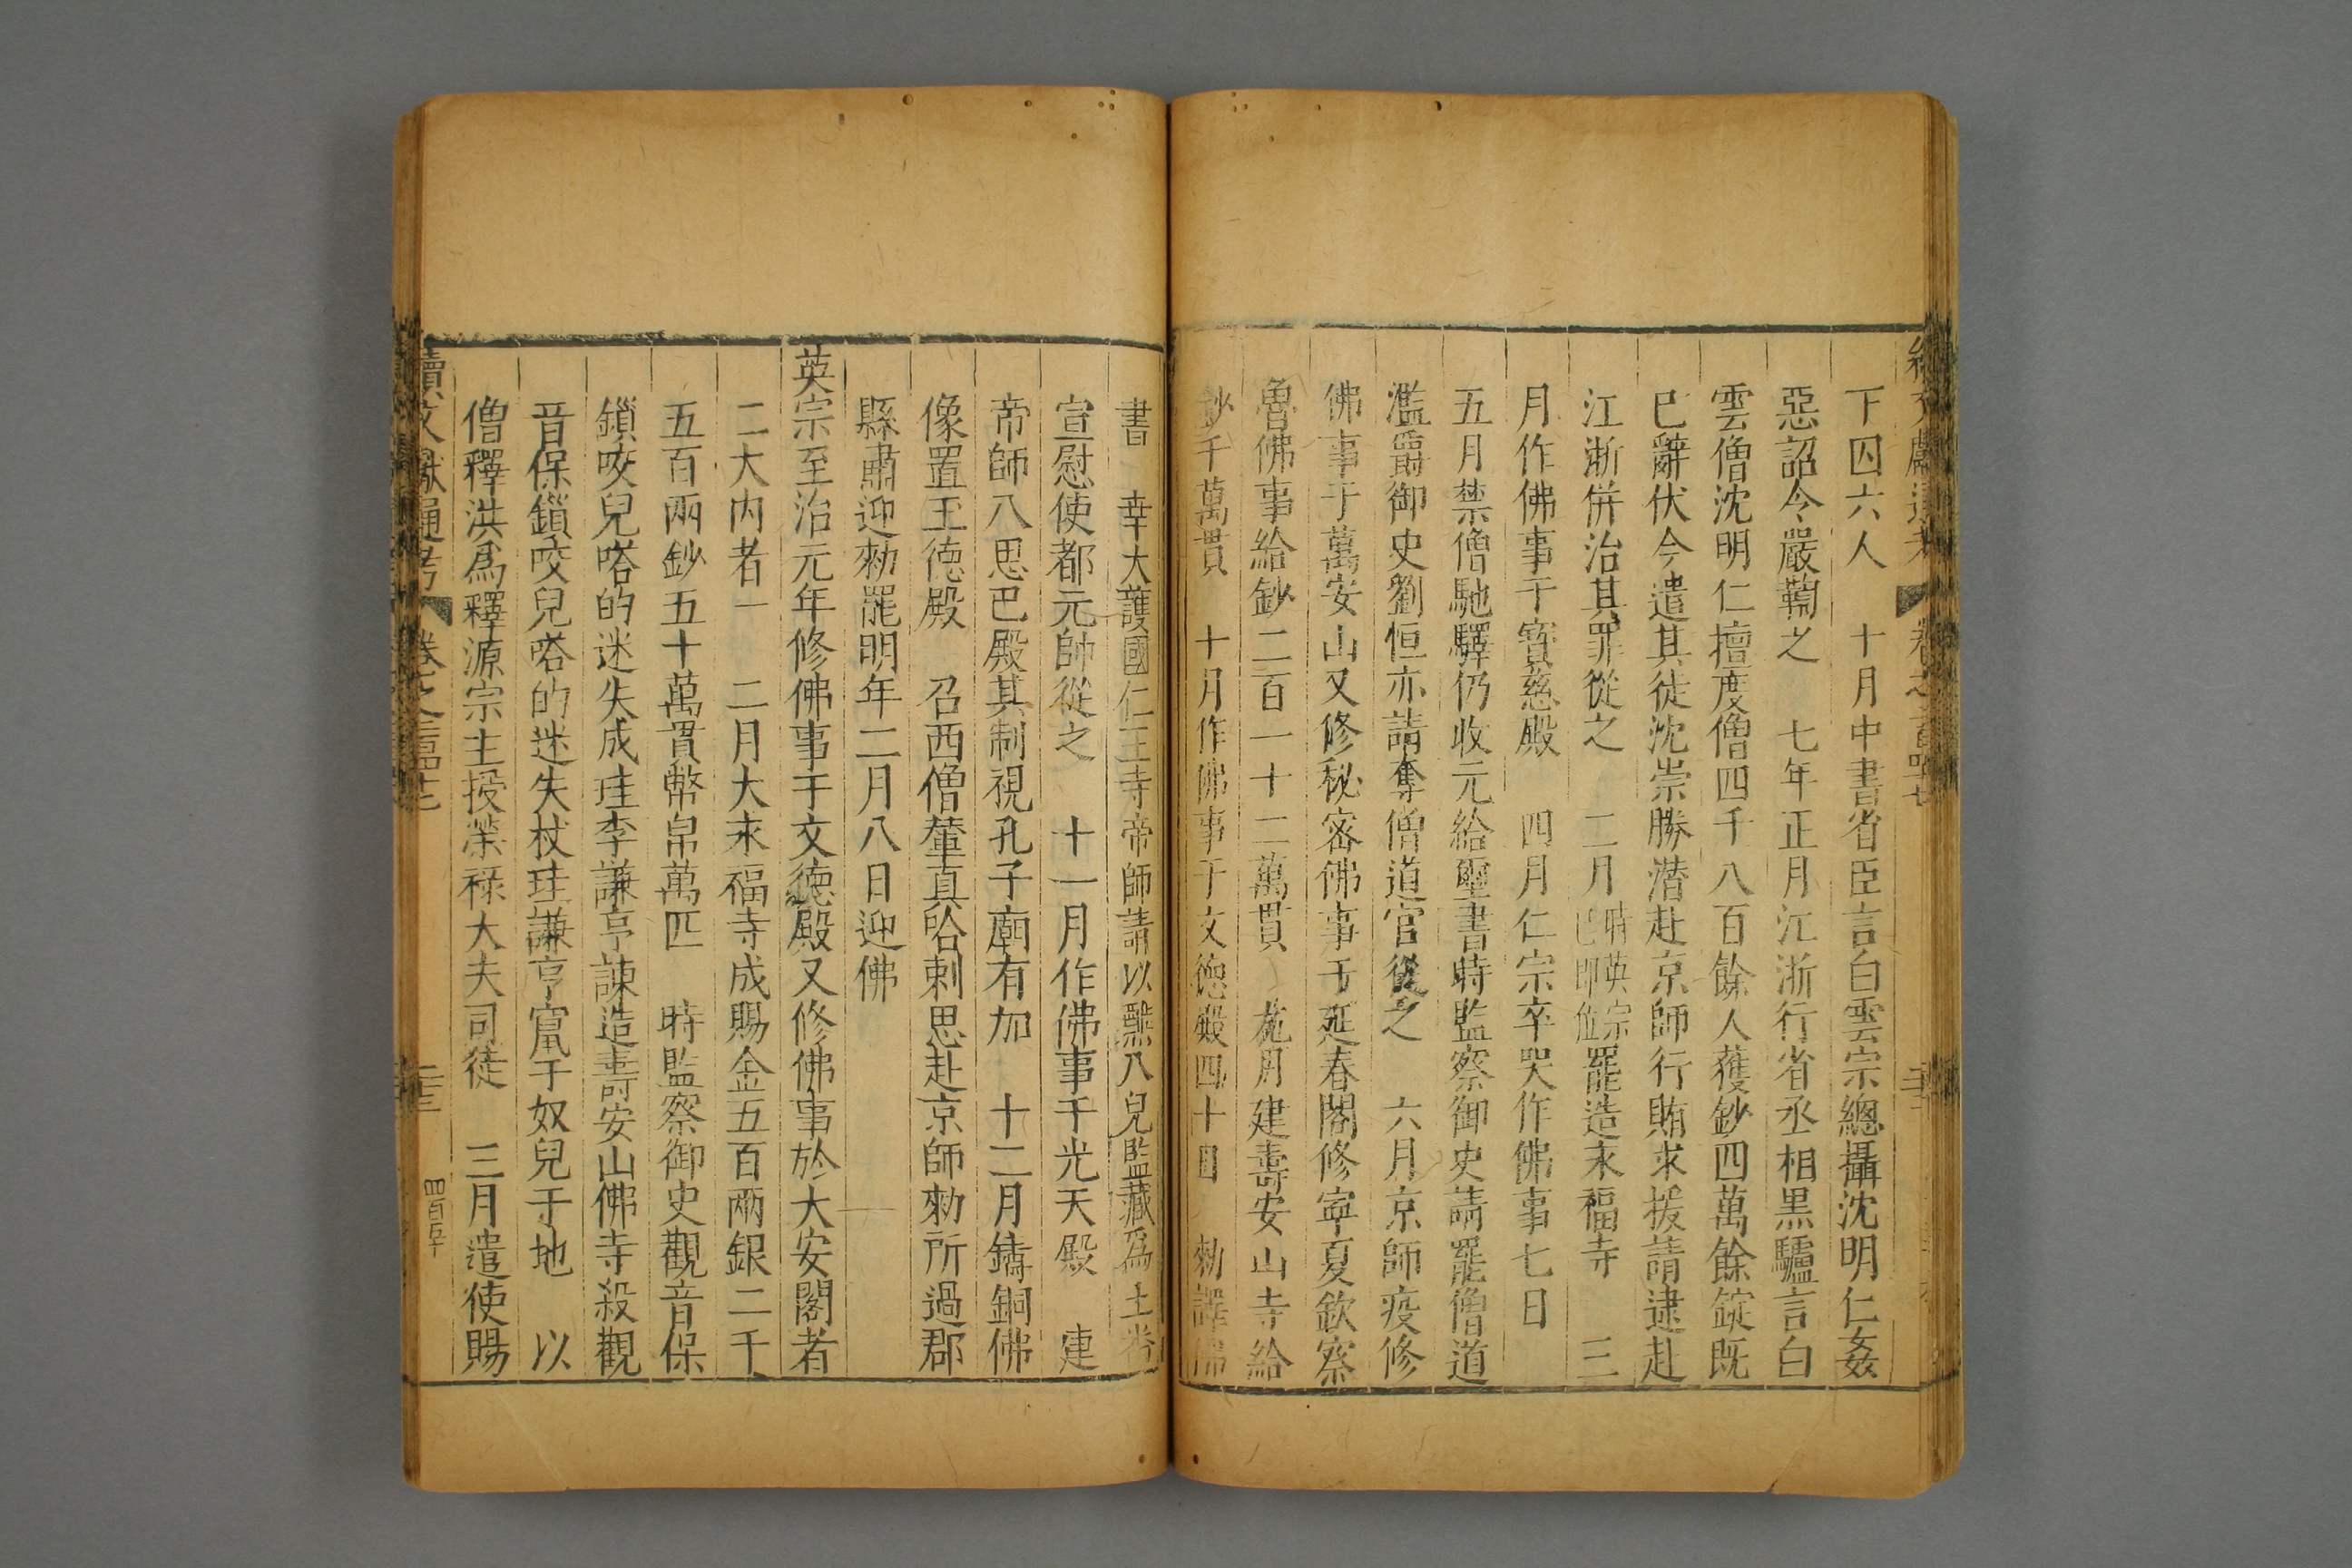 下囚六人　十月中書省臣言白雲宗總攝沈明仁姦
惡詔令嚴鞫之　七年正月江浙行省丞相黑驢言白
雲僧沈明仁擅度僧四千八百餘人獲鈔四萬餘錠既
已辭伏今遣其徒沈崇勝潛赴京師行賄求援請逮赴
江浙併治其罪從之　二月時英宗已即位罷造永福寺　三
月作佛事于寶慈殿　四月仁宗卒哭作佛事七日
五月禁僧馳驛仍收元給璽書時監察御史請罷僧道
濫爵御史劉恒亦請奪僧道官從之　六月京師疫修
佛事于萬安山又修秘密佛事于延春閣修寧夏欽察
魯佛事給鈔二百一十二萬貫　　月建壽安山寺給
鈔千萬貫　十月作佛事于文德殿四十日　勑譯佛
書　幸大護國仁王寺帝師請以醮八兒監藏爲土番
宣慰使都元帥從之　十一月作佛事于光天殿　建
帝師八思巴殿其制視孔子廟有加　十二月鑄銅佛
像置玉德殿　召西僧輦真哈剌思赴京師勑所過郡
縣肅迎勑罷明年二月八日迎佛
英宗至治元年修佛事于文德殿又修佛事於大安閣者
二大内者一　二月大永福寺成賜金五百兩銀二千
五百兩鈔五十萬貫幣帛萬匹　時監察御史觀音保
鎖咬兒嗒的迷失成珪李謙亨諫造壽安山佛寺殺觀
音保鎖咬兒嗒的迷失杖珪謙亨竄于奴兒于地　以
僧釋洪爲釋源宗主授榮祿大夫司徒　三月遣使賜
續文獻通考　卷之二百四十七　二十三　四百五十